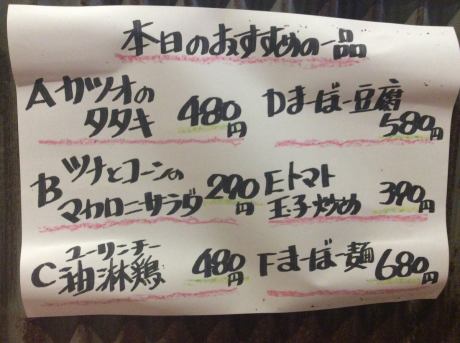 本日のおすすめの一品
Aカツオの
タタキ 480円
Bツナとコーンの
マカロニサラダ 290円
ユーリンチー
C油淋鶏 480円
Dまーぼー豆腐
580円
Eトマト
玉子炒め 390円
Fまーぼー麺 680円